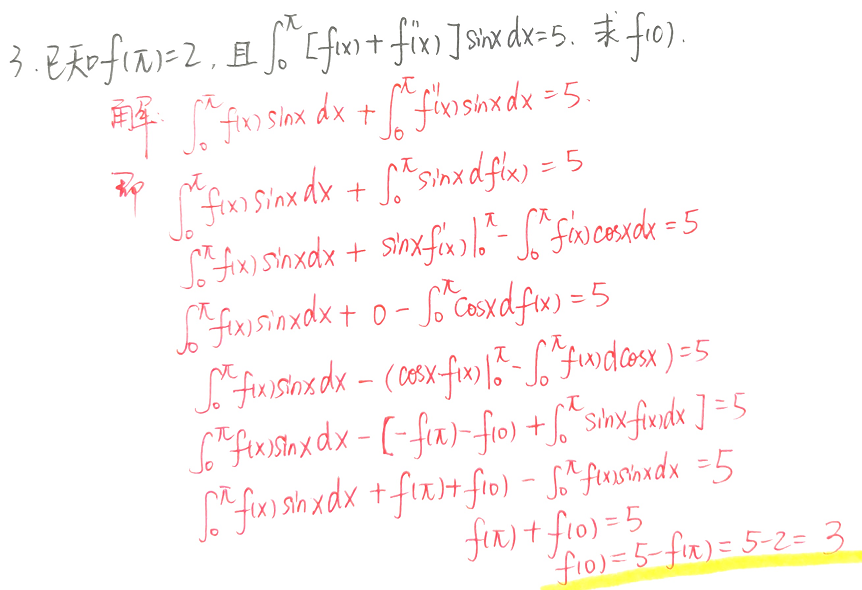 3.已知f(π)=2, 且∫₀^π [f(x)+f''(x)]sinxdx=5. 求f(0).
解: ∫₀^π f(x)sinx dx + ∫₀^π f''(x)sinxdx = 5.
即 ∫₀^π f(x)sinxdx + ∫₀^π sinxdf'(x) = 5
∫₀^π f(x)sinxdx + sinxf'(x)|₀^π - ∫₀^π f'(x)cosxdx = 5
∫₀^π f(x)sinxdx + 0 - ∫₀^π cosxdf(x) = 5
∫₀^π f(x)sinxdx - (cosx·f(x)|₀^π - ∫₀^π f(x)dcosx) = 5
∫₀^π f(x)sinxdx - [-f(π)-f(0)+∫₀^π sinxf(x)dx] = 5
∫₀^π f(x)sinxdx + f(π)+f(0) - ∫₀^π f(x)sinxdx = 5
f(π)+f(0)=5
f(0)=5-f(π)=5-2=3